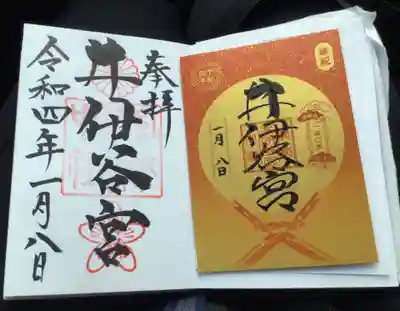 奉拝
井伊谷宮
令和四年一月八日
井伊谷宮
一月八日